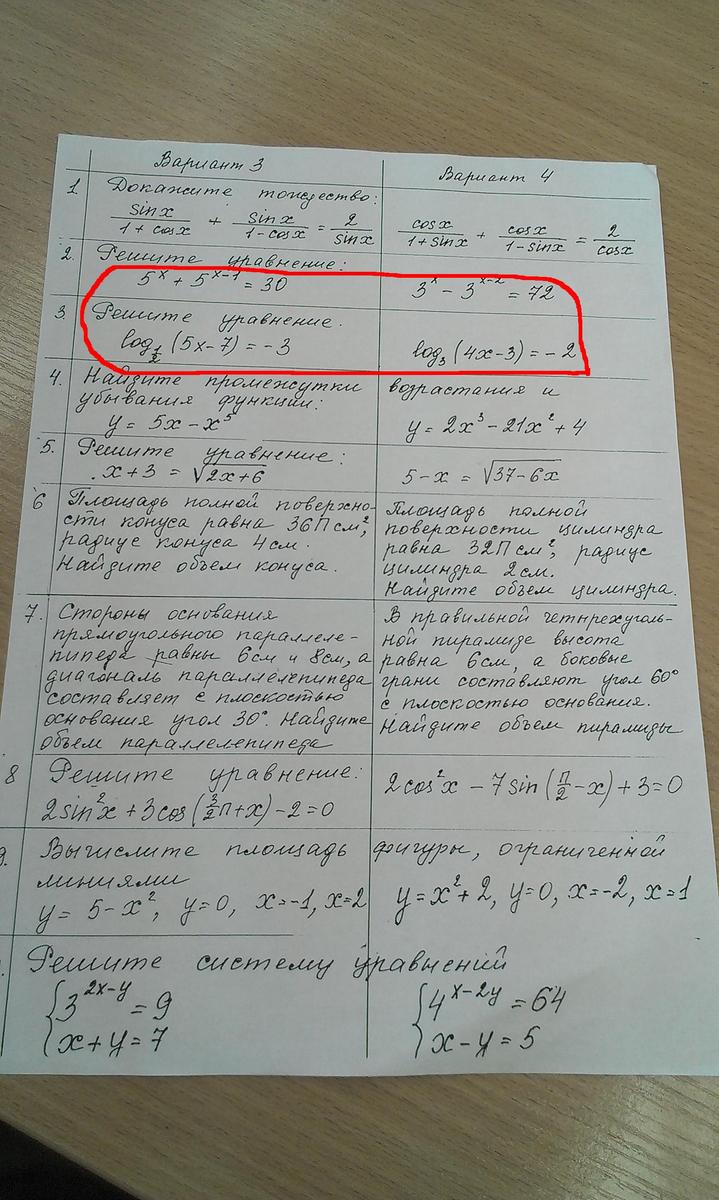 Вариант 3
Вариант 4
1. Докажите тождество:
sinx/(1 + cosx) + sinx/(1 - cosx) = 2/sinx
cosx/(1+sinx) + cosx/(1-sinx) = 2/cosx
2. Решите уравнение:
5^x + 5^(x-1) = 30
3^x - 3^(x-2) = 72
3. Решите уравнение.
log_(1/2) (5x-7) = -3
log_3 (4x-3) = -2
4. Найдите промежутки возрастания и
убывания функции:
y = 5x - x^5
y = 2x^3 - 21x^2 + 4
5. Решите уравнение:
x+3 = √(2x+6)
5-x = √(37-6x)
6 Площадь полной поверхно-
сти конуса равна 36П см²,
радиус конуса 4см.
Найдите объем конуса.
Площадь полной
поверхности цилиндра
равна 32П см², радиус
цилиндра 2см.
Найдите объем цилиндра.
7. Стороны основания
прямоугольного параллеле-
пипеда равны 6см и 8см, а
диагональ параллелепипеда
составляет с плоскостью
основания угол 30°. Найдите
объем параллелепипеда
В правильной четырехуголь-
ной пирамиде высота
равна 6см, а боковые
грани составляют угол 60°
с плоскостью основания.
Найдите объем пирамиды
8 Решите уравнение:
2sin²x + 3cos(3/2П+x) - 2 = 0
2cos²x - 7sin(П/2 - x) + 3 = 0
9. Вычислите площадь фигуры, ограниченной
линиями
y = 5-x², y=0, x=-1, x=2
y = x²+2, y=0, x=-2, x=1
Решите систему уравнений
{3^(2x-y) = 9
x+y = 7
{4^(x-2y) = 64
x-y = 5